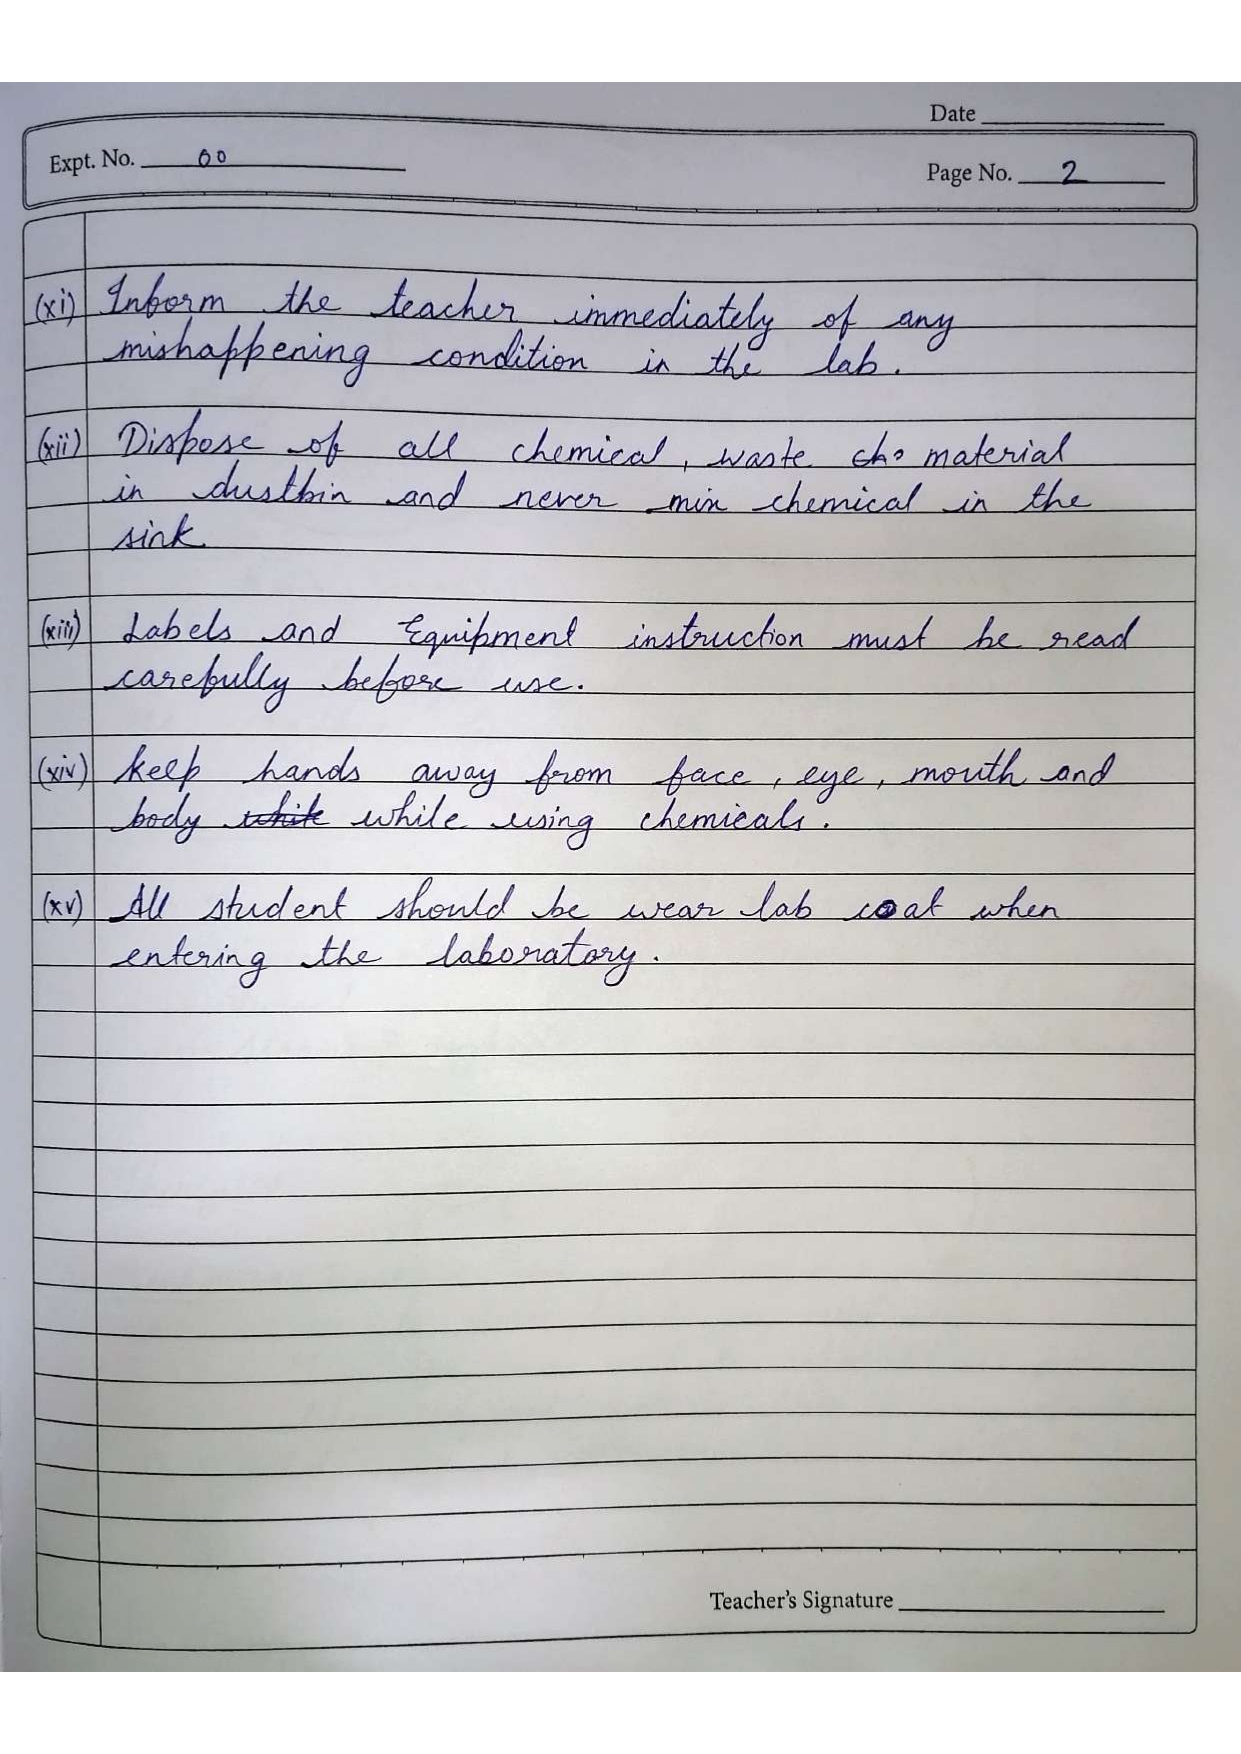 Date
Expt. No. 00
Page No. 2
(xi) Inform the teacher immediately of any
mishappening condition in the lab.
(xii) Dispose of all chemical, waste material
in dustbin and never mix chemical in the
sink
(xiii) Labels and Equipment instruction must be read
carefully before use.
(xiv) keep hands away from face, eye, mouth and
body while using chemicals.
(xv) All student should be wear lab coat when
entering the laboratory.
Teacher's Signature